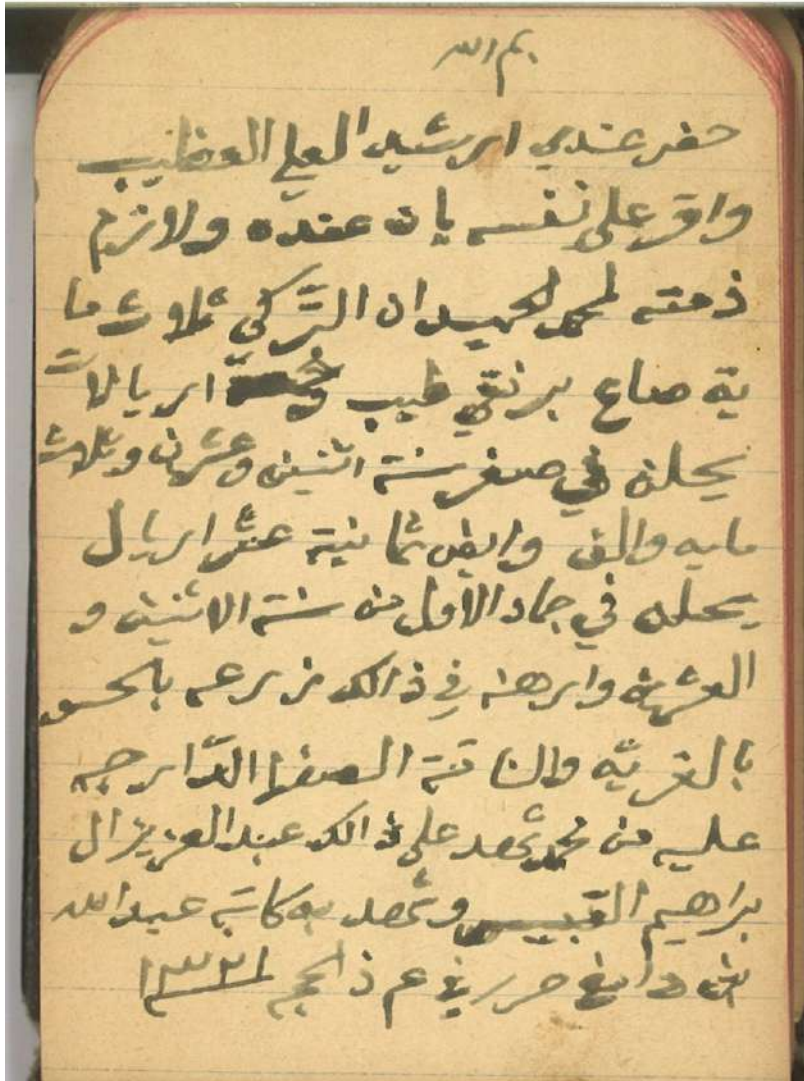 بسم الله
حضر عندي ارشيد العلي العضيب
واقر على نفسه بان عنده ولازم
ذمته لمحمد الحميدان التركي ثلاث ما
ية صاع بر نقي طيب اريالات
يحلن في صفر سنة اثنين وعشرن وثلاث
مايه والف وايض ثمانية عشر اريال
يحلن في جماد الاول من سنة الاثنين و
العشرين وارهنه في ذالك زرعه
والناقة الصفرا الدارجه
عليه من محمد شهد على ذالك عبد العزيز ال
براهيم القبيسي وشهد به كاتبه عبدالله
حرر في ذالحجه ١٣٢١